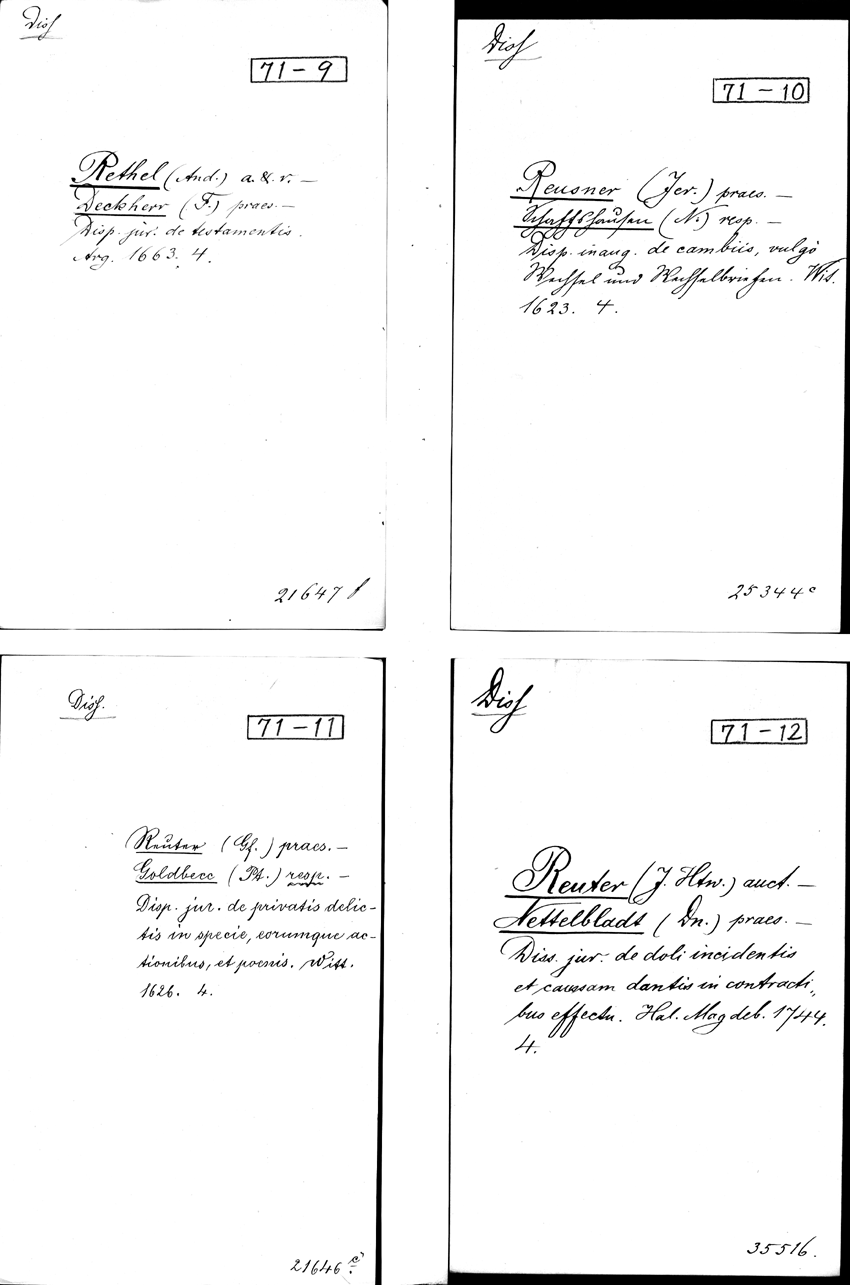 Diss
71-9
Rethel (And.) a. & r. —
Deckherr (F.) praes. —
Disp. jur. de testamentis.
Arg. 1663. 4.
21647 f
Diss
71-10
Reusner (Jer.) praes. —
Schaffshausen (N.) resp. —
Disp. inaug. de cambiis, vulgò
Wechsel und Wechselbriefen. Wit.
1623. 4.
25344 c
Diss.
71-11
Reuter (Gf.) praes. —
Goldbecc (Pt.) resp. —
Disp. jur. de privatis delic-
tis in specie, eorumque ac-
tionibus, et poenis. Witt.
1626. 4.
21646 c
Diss
71-12
Reuter (J. Htw.) auct. —
Nettelbladt (Dn.) praes. —
Diss. jur. de doli incidentis
et caussam dantis in contracti„
bus effectu. Hal. Magdeb. 1744.
4.
35516.